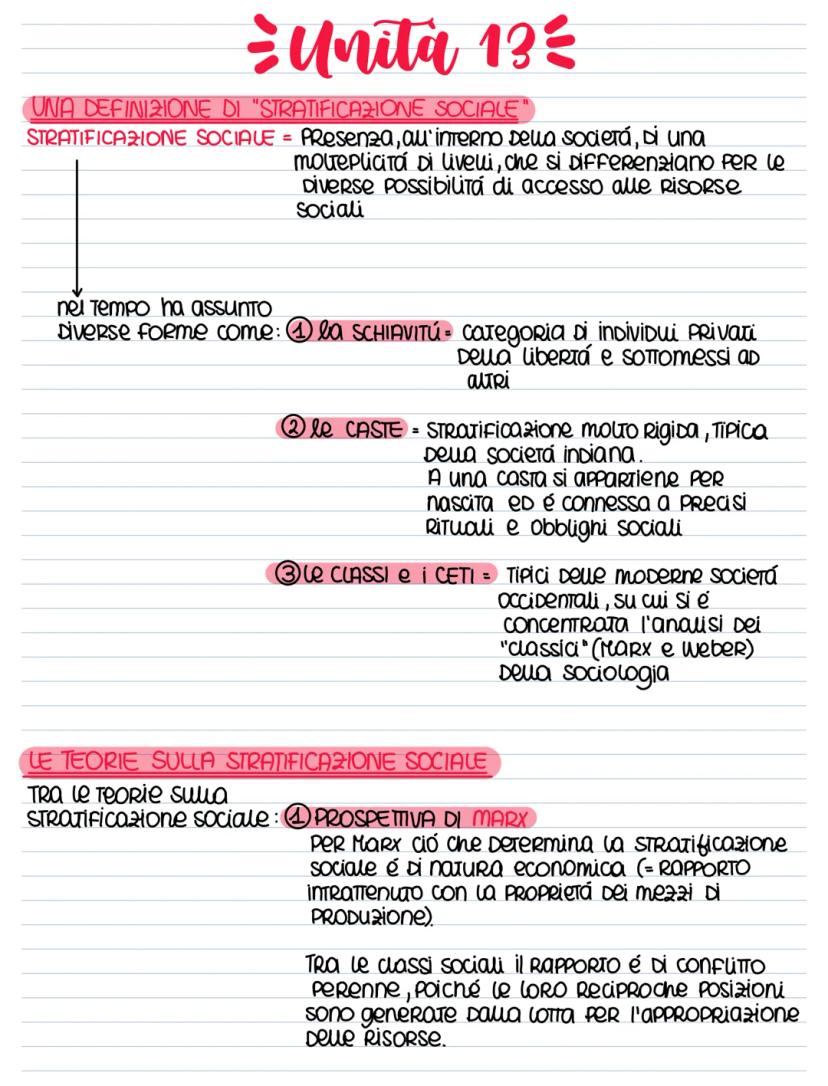 Unità 13
UNA DEFINIZIONE DI "STRATIFICAZIONE SOCIALE"
STRATIFICAZIONE SOCIALE = Presenza, all'interno della societá, di una
molteplicitá di livelli, che si differenziano per le
diverse possibilitá di accesso alle risorse
sociali
nel tempo ha assunto
diverse forme come: ① la SCHIAVITÚ = categoria di individui privati
della libertá e sottomessi ad
altri
② le CASTE = stratificazione molto rigida, tipica
della societá indiana.
A una casta si appartiene per
nascita ed é connessa a precisi
rituali e obblighi sociali
③ le CLASSI e i CETI = Tipici delle moderne societá
occidentali, su cui si é
concentrata l'analisi dei
"classici" (Marx e Weber)
della sociologia
LE TEORIE SULLA STRATIFICAZIONE SOCIALE
Tra le teorie sulla
stratificazione sociale: ① PROSPETTIVA DI MARX
Per Marx ció che determina la stratificazione
sociale é di natura economica (= rapporto
intrattenuto con la proprietá dei mezzi di
produzione).
Tra le classi sociali il rapporto é di conflitto
perenne, poiché le loro reciproche posizioni
sono generate dalla lotta per l'appropriazione
delle risorse.